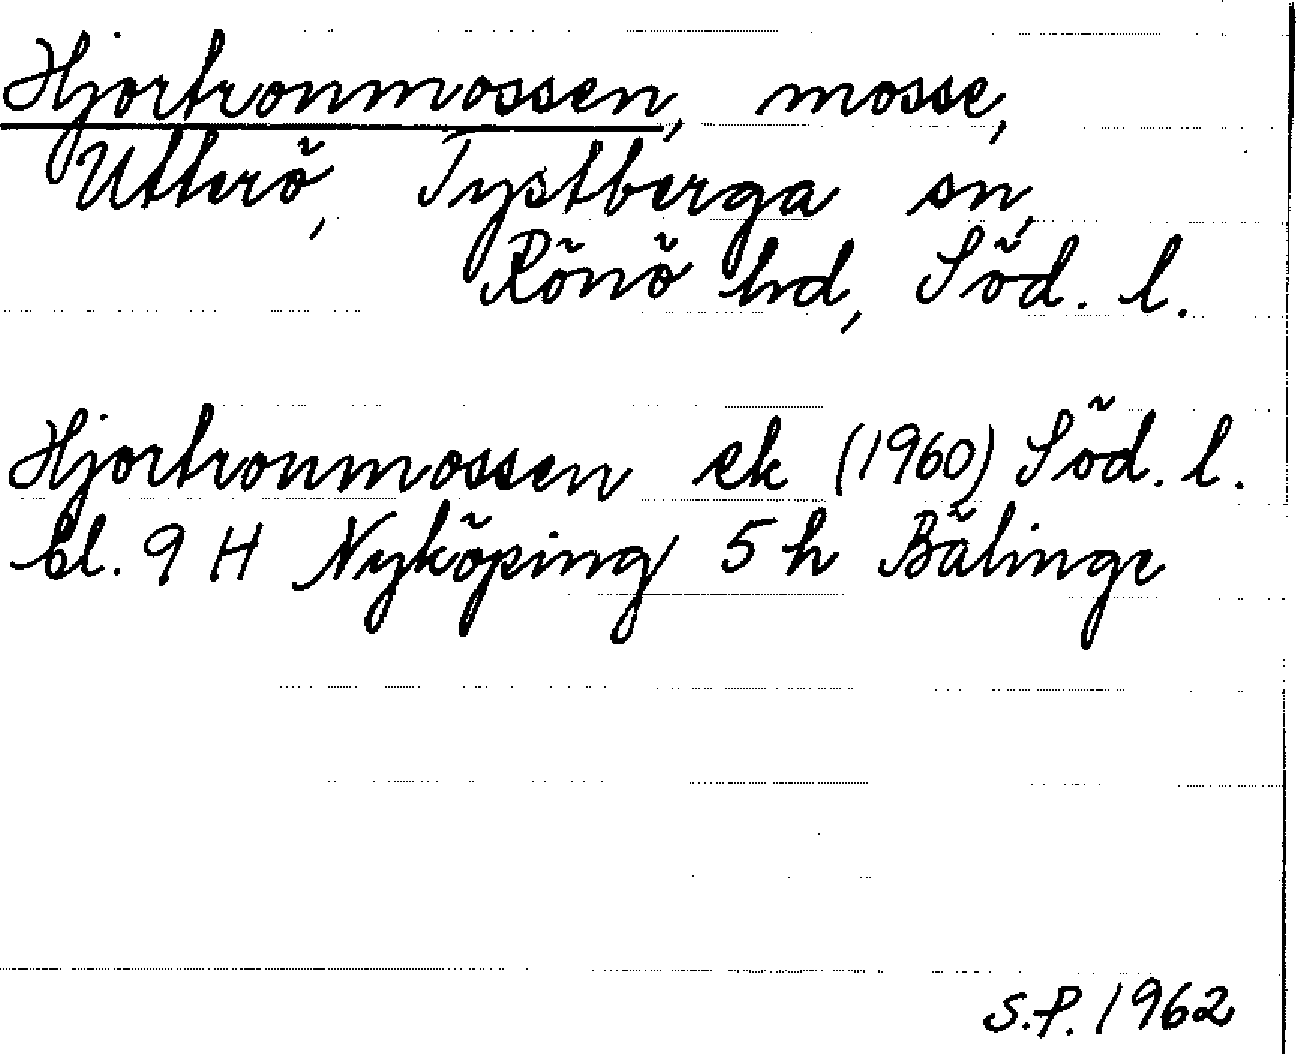 Hjortronmossen, mosse,
Utterö, Tystberga sn,
Rönö hd, Söd. l.
Hjortronmossen ek (1960) Söd. l.
bl. 9 H Nyköping 5 h Bälinge
S.P. 1962